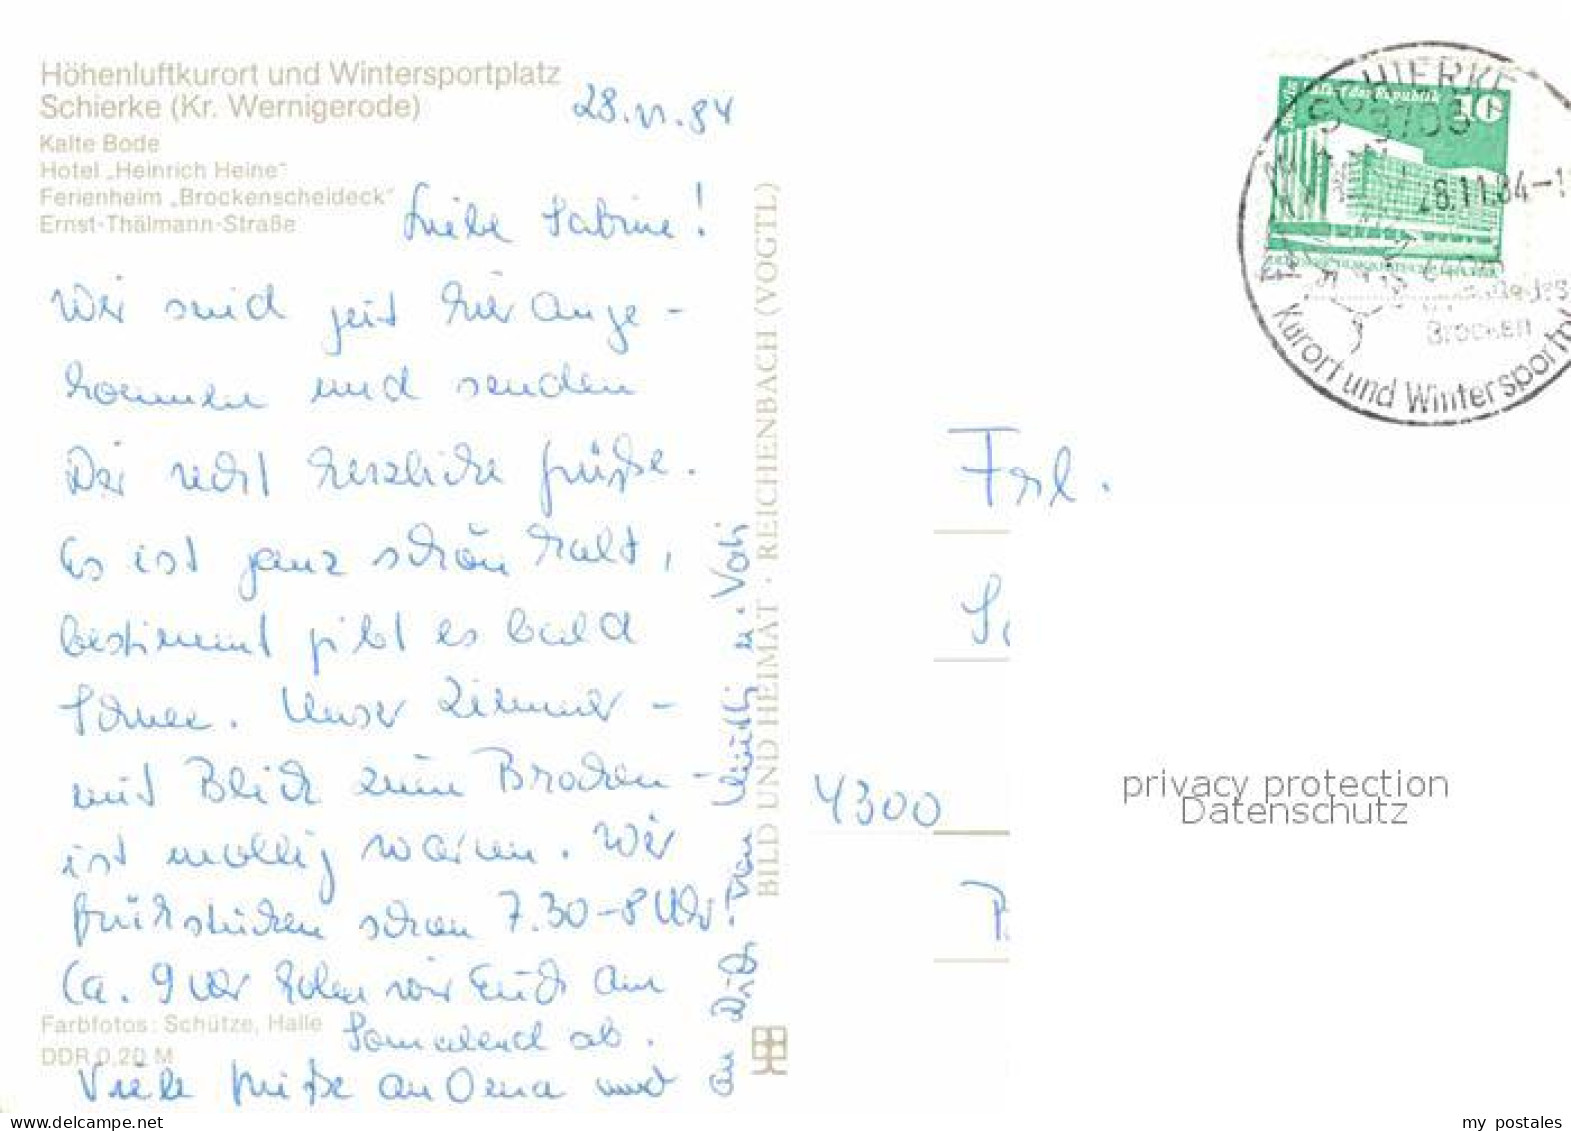 Höhenluftkurort und Wintersportplatz
Schierke (Kr. Wernigerode)
Kalte Bode
Hotel „Heinrich Heine"
Ferienheim „Brockenscheideck"
Ernst-Thälmann-Straße
28.11.84
Liebe Sabine!
Wir sind jetzt hier ange-
kommen und senden
Dir recht herzliche Grüße.
Es ist ganz schön kalt,
bestimmt gibt es bald
Schnee. Unser Zimmer -
mit Blick zum Brocken -
ist mollig warm. Wir
frühstücken schon 7.30-8 Uhr.
Ca. 9 Uhr holen wir Euch am
Sonnabend ab.
Viele Grüße an Oma und
an Dich von Mutti u. Vati
Farbfotos: Schütze, Halle
DDR 0,20 M
BILD UND HEIMAT · REICHENBACH (VOGTL)
10
SCHIERKE
3703
28.11.84-1
Brocken
Kurort und Wintersportpl
Frl.
4300
privacy protection
Datenschutz
www.delcampe.net
my_postales